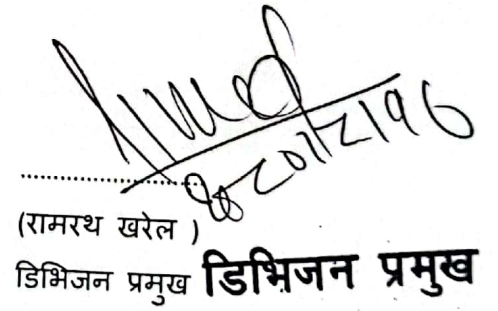 (रामरथ खरेल )
डिभिजन प्रमुख डिभिजन प्रमुख